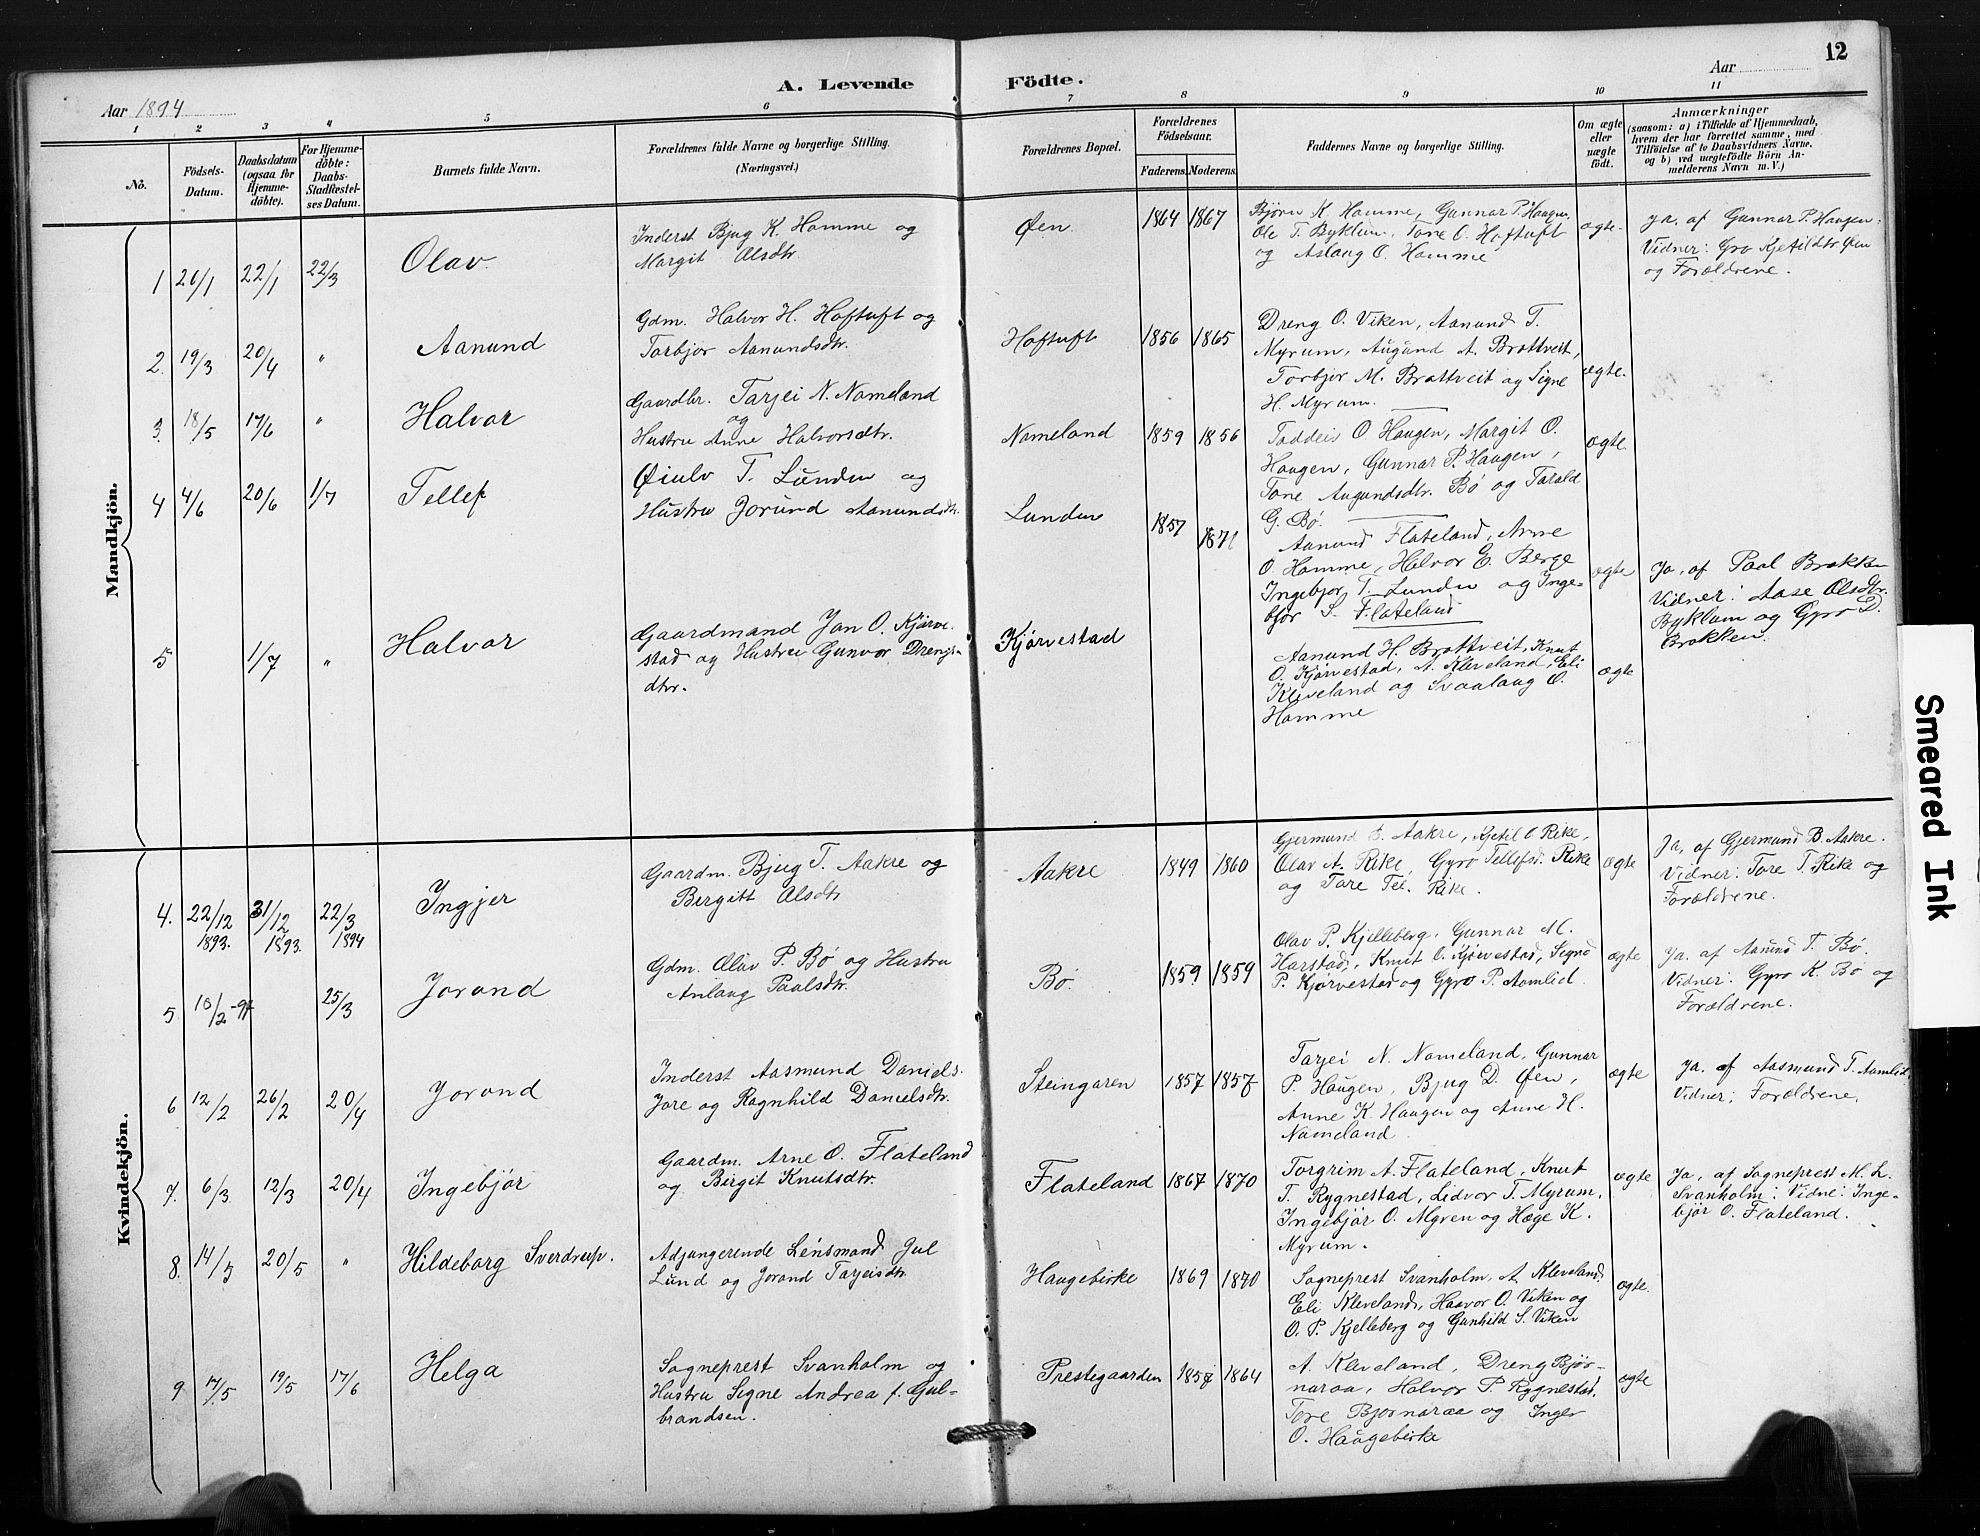 12
A. Levende Födte.
Aar 1894
Aar
1 2 3 4 5 6 7 8 9 10 11
No.
Födsels-Datum.
Daabsdatum (ogsaa for Hjemme-döbte).
For Hjemme-döbte: Daabs-Stadfæstel-ses Datum.
Barnets fulde Navn.
Forældrenes fulde Navne og borgerlige Stilling.
(Næringsvei.)
Forældrenes Bopæl.
Forældrenes Födselsaar.
Faderens. Moderens.
Faddernes Navne og borgerlige Stilling.
Om ægte eller uægte födt.
Anmærkninger
(saasom: a) i Tilfælde af Hjemmedaab,
hvem der har forrettet samme, med
Tilföielse af to Daabsvidners Navne.
og b) ved uægtefödte Börn An-
melderens Navn m. V.)
Mandkjön.
1 20/1 22/1 22/3 Olav
Inderst Bjug K. Homme og
Margit Olsdtr.
Øen 1864 1867
Bjørn K. Homme, Gunnar P. Haugen,
Ole T. Byklum, Tone O. Hoftuft
og Aslaug O. Homme
ægte.
Ja. af Gunnar P. Haugen.
Vidner: Gro Kjetildtr Øen
og Forældrene.
2. 19/3 20/4 " Aanund
Gdm. Halvor H. Hoftuft og
Torbjor Aanundsdtr.
Hoftuft 1856 1865
Dreng O. Viken, Aanund T.
Myrum, Augund A. Brottveit,
Torbjor M. Brottveit og Signe
H. Myrum.
ægte.
3. 18/5 17/6 " Halvor
Gaardbr. Tarjei N. Nomeland
og
Hustru Anne Halvorsdtr.
Nomeland 1859 1856
Taddeis O Haugen, Margit O.
Haugen, Gunnar P. Haugen,
Tone Augundsdtr. Bø og Torald
G. Bø.
ægte.
4 4/6 20/6 1/7 Tellef
Øiulv T. Lunden og
Hustru Jorund Aanundsdtr.
Lunden 1857 1871
Aanund Flateland, Arne
O. Homme, Halvor E. Berge
Ingebjor T. Lunden og Inge-
bjør S. Flateland
ægte
Ja, af Paal Brokke
Vidner: Aase Olsdtr.
Byklum og Gyro D.
Brokken.
5 1/7 " Halvor
Gaardmand Jon O. Kjørve-
stad og Hustru Gunvor Drengs-
dtr.
Kjørvestad
Aanund H. Brottveit, Knut
O. Kjørvestad, A. Kleveland, Eli
Kleveland og Svaalaug O.
Homme
ægte
Kvindekjön.
4. 22/12 1893. 31/12 1893. 22/3 1894 Ingjer
Gaardm. Bjug T. Aakre og
Bergitt Olsdtr
Aakre 1849 1860
Gjermund B. Aakre, Kjetil O Rike,
Olav A. Rike, Gyro Tellefsd. Rike
og Tore Tel. Rike.
ægte
Ja, af Gjermund B. Aakre.
Vidner: Tore T. Rike og
Forældrene.
5 18/2-94 25/3 Jorond
Gdm. Olav P. Bø og Hustru
Anlaug Paalsdtr.
Bø 1859 1859
Olav P. Kjelleberg, Gunnar M.
Harstad, Knut O. Kjørvestad, Signe
P. Kjørvestad og Gyro P. Aamlid.
ægte
Ja. af Aanund T. Bø.
Vidner: Gyro K. Bø og
Forældrene.
6 12/2 26/2 20/4 Jorond
Inderst Aasmund Daniels.
Jore og Ragnhild Danielsdtr.
Steingaren 1857 1857
Tarjei N. Nomeland, Gunnar
P. Haugen, Bjug D. Øen,
Anne K. Haugen og Anne H.
Nomeland.
ægte
Ja. af Aasmund T. Aamlid
Vidner: Forældrene.
7. 6/3 12/3 20/4 Ingebjør
Gaardm. Arne O. Flateland
og Birgit Knutsdtr.
Flateland 1867 1870
Torgrim A. Flateland, Knut
T. Rygnestad, Lidvor T. Myrum,
Ingebjør O. Myren og Hæge K.
Myrum.
ægte
Ja, af Sogneprest M. L.
Svanholm: Vidne: Inge-
bjør O. Flateland.
8. 14/3 20/5 " Hildeborg Sverdrup.
Adjungerende Lensmand Jul
Lund og Jorand Tarjeisdtr.
Haugebirke 1869 1870
Sogneprest Svanholm, A. Kleveland,
Eli Kleveland, Haavor O. Viken og
O. P. Kjelleberg og Gunhild S. Viken
ægte.
9 17/5 19/5 17/6 Helga
Sogneprest Svanholm og
Hustru Signe Andrea f. Gul-
brandsen.
Prestegaarden 1857 1864
A. Kleveland, Dreng Bjør-
naraa, Halvor P. Rygnestad,
Tore Bjørnaraa og Inger
O. Haugebirke
ægte
Smeared Ink